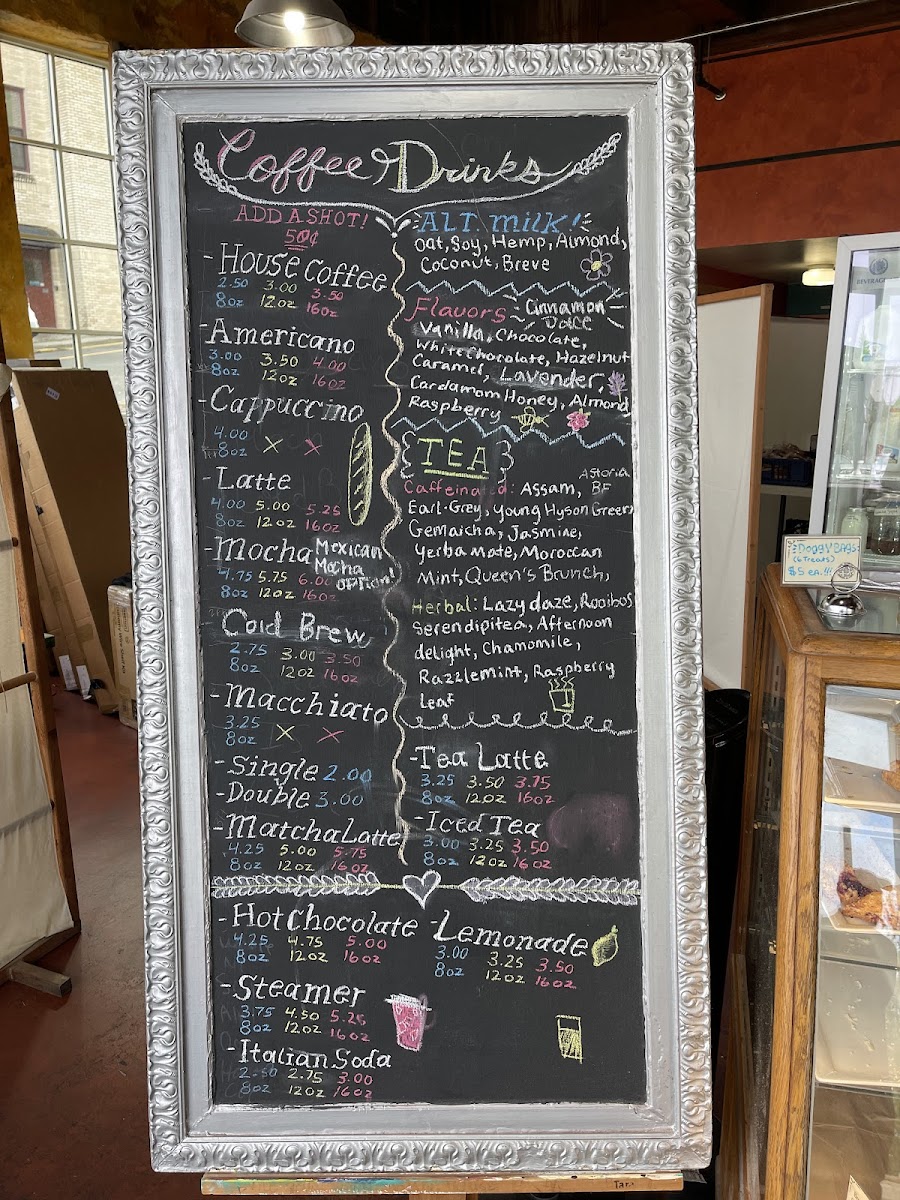 Coffee & Drinks
ADD A SHOT!
50¢
-House Coffee
2.50 3.00 3.50
8oz 12oz 16oz
-Americano
3.00 3.50 4.00
8oz 12oz 16oz
-Cappuccino
4.00
8oz x x
-Latte
4.00 5.00 5.25
8oz 12oz 16oz
-Mocha Mexican
Mocha
option!
4.75 5.75 6.00
8oz 12oz 16oz
Cold Brew
2.75 3.00 3.50
8oz 12oz 16oz
-Macchiato
3.25
8oz x x
-Single 2.00
-Double 3.00
-Matcha Latte
4.25 5.00 5.75
8oz 12oz 16oz
ALT. milk!
Oat, Soy, Hemp, Almond,
Coconut, Breve
Flavors Cinnamon
Dolce
Vanilla, Chocolate,
White Chocolate, Hazelnut
Caramel, Lavender,
Cardamom Honey, Almond
Raspberry
TEA
Astoria
Caffeinated: Assam, BF
Earl-Grey, Young Hyson Green
Gemaicha, Jasmine,
Yerba Mate, Moroccan
Mint, Queen's Brunch,
Herbal: Lazy daze, Rooibos
Serendipitea, Afternoon
delight, Chamomile,
Razzlemint, Raspberry
Leaf
-Tea Latte
3.25 3.50 3.75
8oz 12oz 16oz
-Iced Tea
3.00 3.25 3.50
8oz 12oz 16oz
-Hot Chocolate
4.25 4.75 5.00
8oz 12oz 16oz
-Lemonade
3.00 3.25 3.50
8oz 12oz 16oz
-Steamer
3.75 4.50 5.25
8oz 12oz 16oz
-Italian Soda
2.50 2.75 3.00
8oz 12oz 16oz
DOGGY BAGS
(6 Treats)
$5 ea.!!!